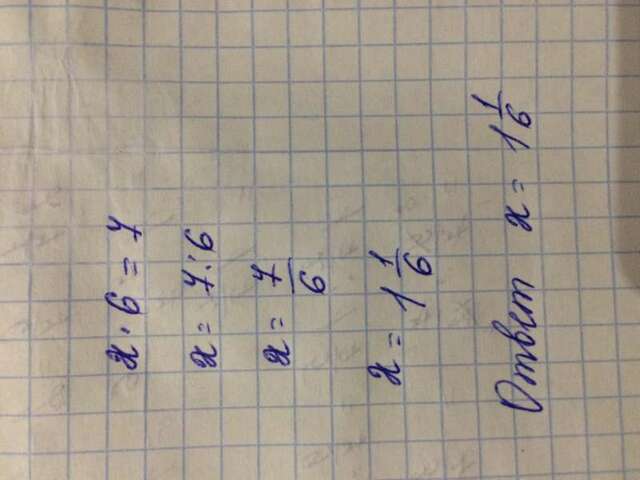 x · 6 = 7
x = 7 : 6
x = 7/6
x = 1 1/6
Ответ x = 1 1/6